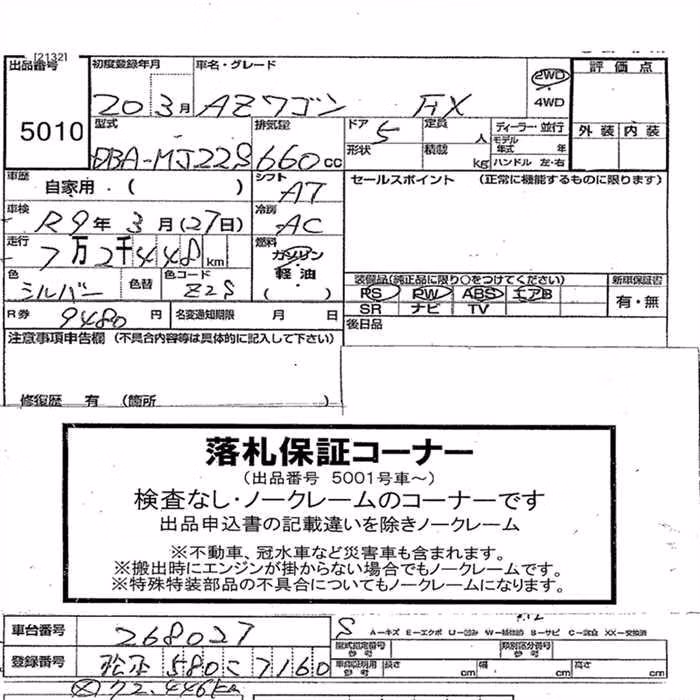 [2132]
出品番号 5010
初度登録年月 20 . 3 月
車名・グレード AZワゴン FX
2WD
4WD
評価点
外装 内装
型式 DBA-MJ22S
排気量 660 cc
ドア 5
形状
定員 人
積載 kg
ディーラー・並行
モデル年式 年
ハンドル 左・右
車歴 自家用・( )
シフト AT
セールスポイント (正常に機能するものに限ります)
車検 R9 年 3 月(27日)
冷房 AC
走行 7万2千448km
燃料 ガソリン 軽油 ( )
色 シルバー 色替
色コード Z2S
装備品(純正品に限り○をつけてください)
新車保証書
PS PW ABS エアB
有・無
SR ナビ TV
R券 9480 円
名変通知期限 月 日
後日品
注意事項申告欄 (不具合内容等は具体的に記入して下さい)
修復歴 有 (箇所 )
落札保証コーナー
(出品番号 5001号車~)
検査なし・ノークレームのコーナーです
出品申込書の記載違いを除きノークレーム
※不動車、冠水車など災害車も含まれます。
※搬出時にエンジンが掛からない場合でもノークレームです。
※特殊特装部品の不具合についてもノークレームになります。
車台番号 268027
S
A-キズ E-エクボ U-凹み W-補修跡 B-サビ C-腐食 XX-交換済
型式指定番号 参考
類別区分番号 参考
登録番号 松本 580 に 7160
車庫証明用 参考
長さ cm 幅 cm 高さ cm
72.446km